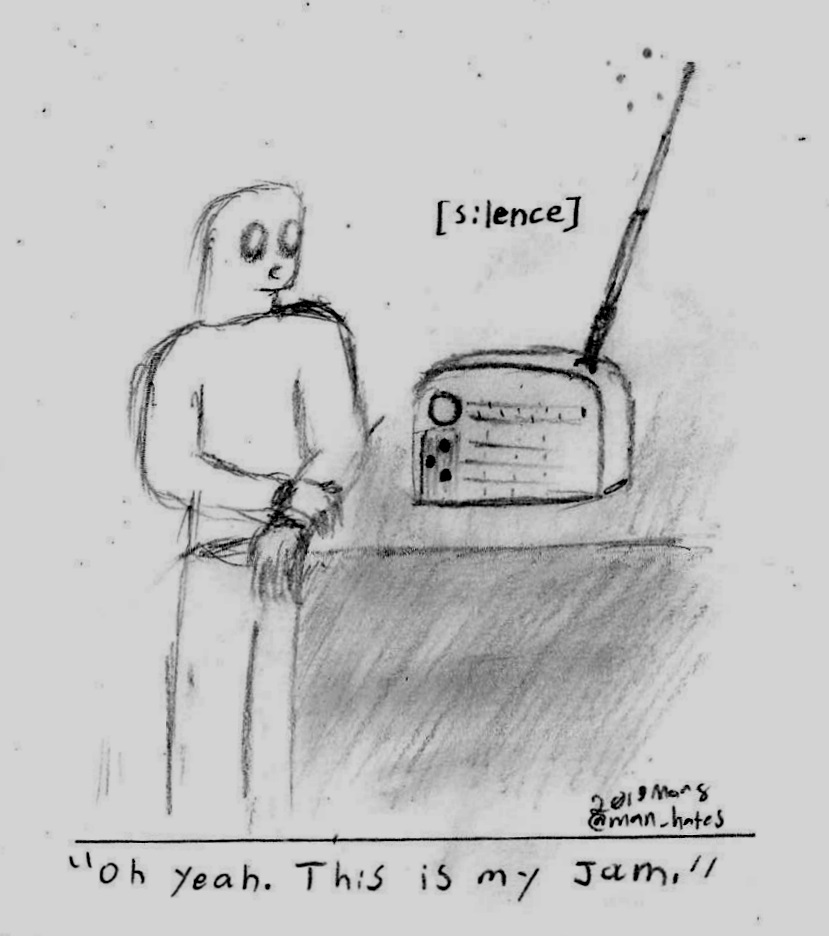 [silence]
2019 Mar 8
@man_hates
"Oh yeah. This is my Jam."